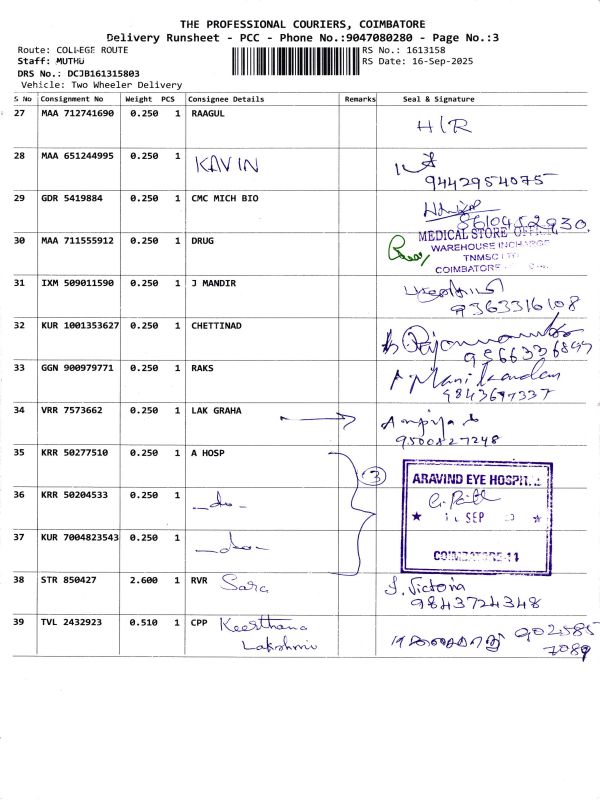 THE PROFESSIONAL COURIERS, COIMBATORE
Delivery Runsheet - PCC - Phone No.:9047080280 - Page No.:3
Route: COLLEGE ROUTE RS No.: 1613158
Staff: MUTHU RS Date: 16-Sep-2025
DRS No.: DCJB161315803
Vehicle: Two Wheeler Delivery
S No Consignment No Weight PCS Consignee Details Remarks Seal & Signature
27 MAA 712741690 0.250 1 RAAGUL H/R
28 MAA 651244995 0.250 1 KAVIN
9442954075
29 GDR 5419884 0.250 1 CMC MICH BIO
8610452930.
30 MAA 711555912 0.250 1 DRUG MEDICAL STORE
WAREHOUSE INCHARGE
TNMSC LTD
COIMBATORE
31 IXM 509011590 0.250 1 J MANDIR
9363316108
32 KUR 1001353627 0.250 1 CHETTINAD
33 GGN 900979771 0.250 1 RAKS Manikandan
9843697337
34 VRR 7573662 0.250 1 LAK GRAHA
9500827248
35 KRR 50277510 0.250 1 A HOSP 3 ARAVIND EYE HOSPITAL
36 KRR 50204533 0.250 1 -do-
SEP
37 KUR 7004823543 0.250 1 -do-
COIMBATORE-14
38 STR 850427 2.600 1 RVR Sara J. Victoria
9843724348
39 TVL 2432923 0.510 1 CPP Keerthana 902585
Lakshmi 7089